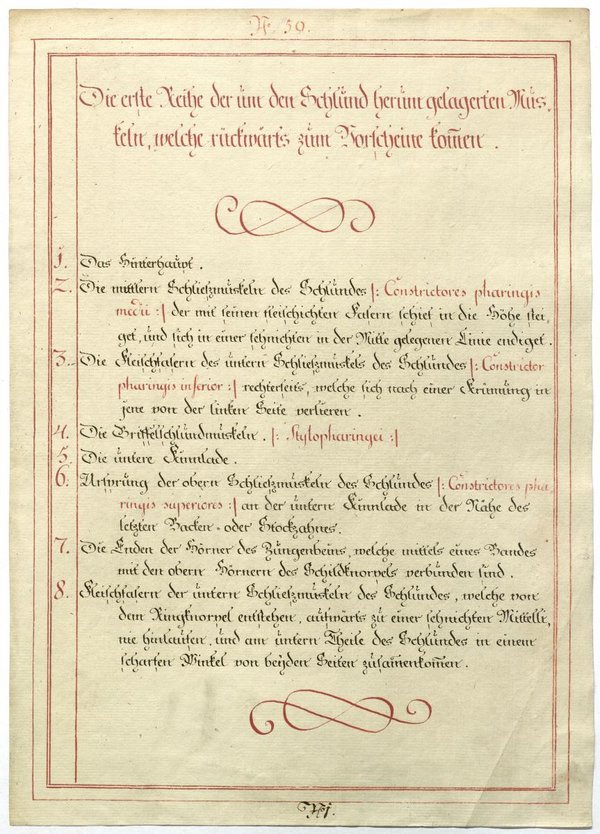 N. 59.
Die erste Reihe der um den Schlund herum gelagerten Mus-
keln, welche rückwärts zum Vorscheine kom̅en.
1. Das Hinterhaupt.
2. Die mittlern Schließmuskeln des Schlundes |: Constrictores pharingis
medii :| der mit seinen fleischichten Fasern schief in die Höhe stei-
get, und sich in einer sehnichten in der Mitte gelegenen Linie endiget.
3. Die Fleischfasern des untern Schließmuskels des Schlundes |: Constrictor
pharingis inferior :| rechterseits, welche sich nach einer Krümung in
jene von der linken Seite verlieren.
4. Die Griffelschlundmuskeln. |: Stylopharingei :|
5. Die untere Kinnlade.
6. Ursprung der obern Schließmuskeln des Schlundes |: Constrictores pha
ringis superiores :| an der untern Kinnlade in der Nähe des
letzten Backen- oder Stockzahnes.
7. Die Enden der Hörner des Zungenbeins, welche mittels eines Bandes
mit den obern Hörnern des Schildknorpels verbunden sind.
8. Fleischfasern der untern Schließmuskeln des Schlundes, welche von
dem Ringknorpel entstehen, aufwärts zu einer sehnichten Mittelli,
nie hinlaufen, und am untern Theile des Schlundes in einem
scharfen Winkel von beyden Seiten zusam̅enkom̅en.